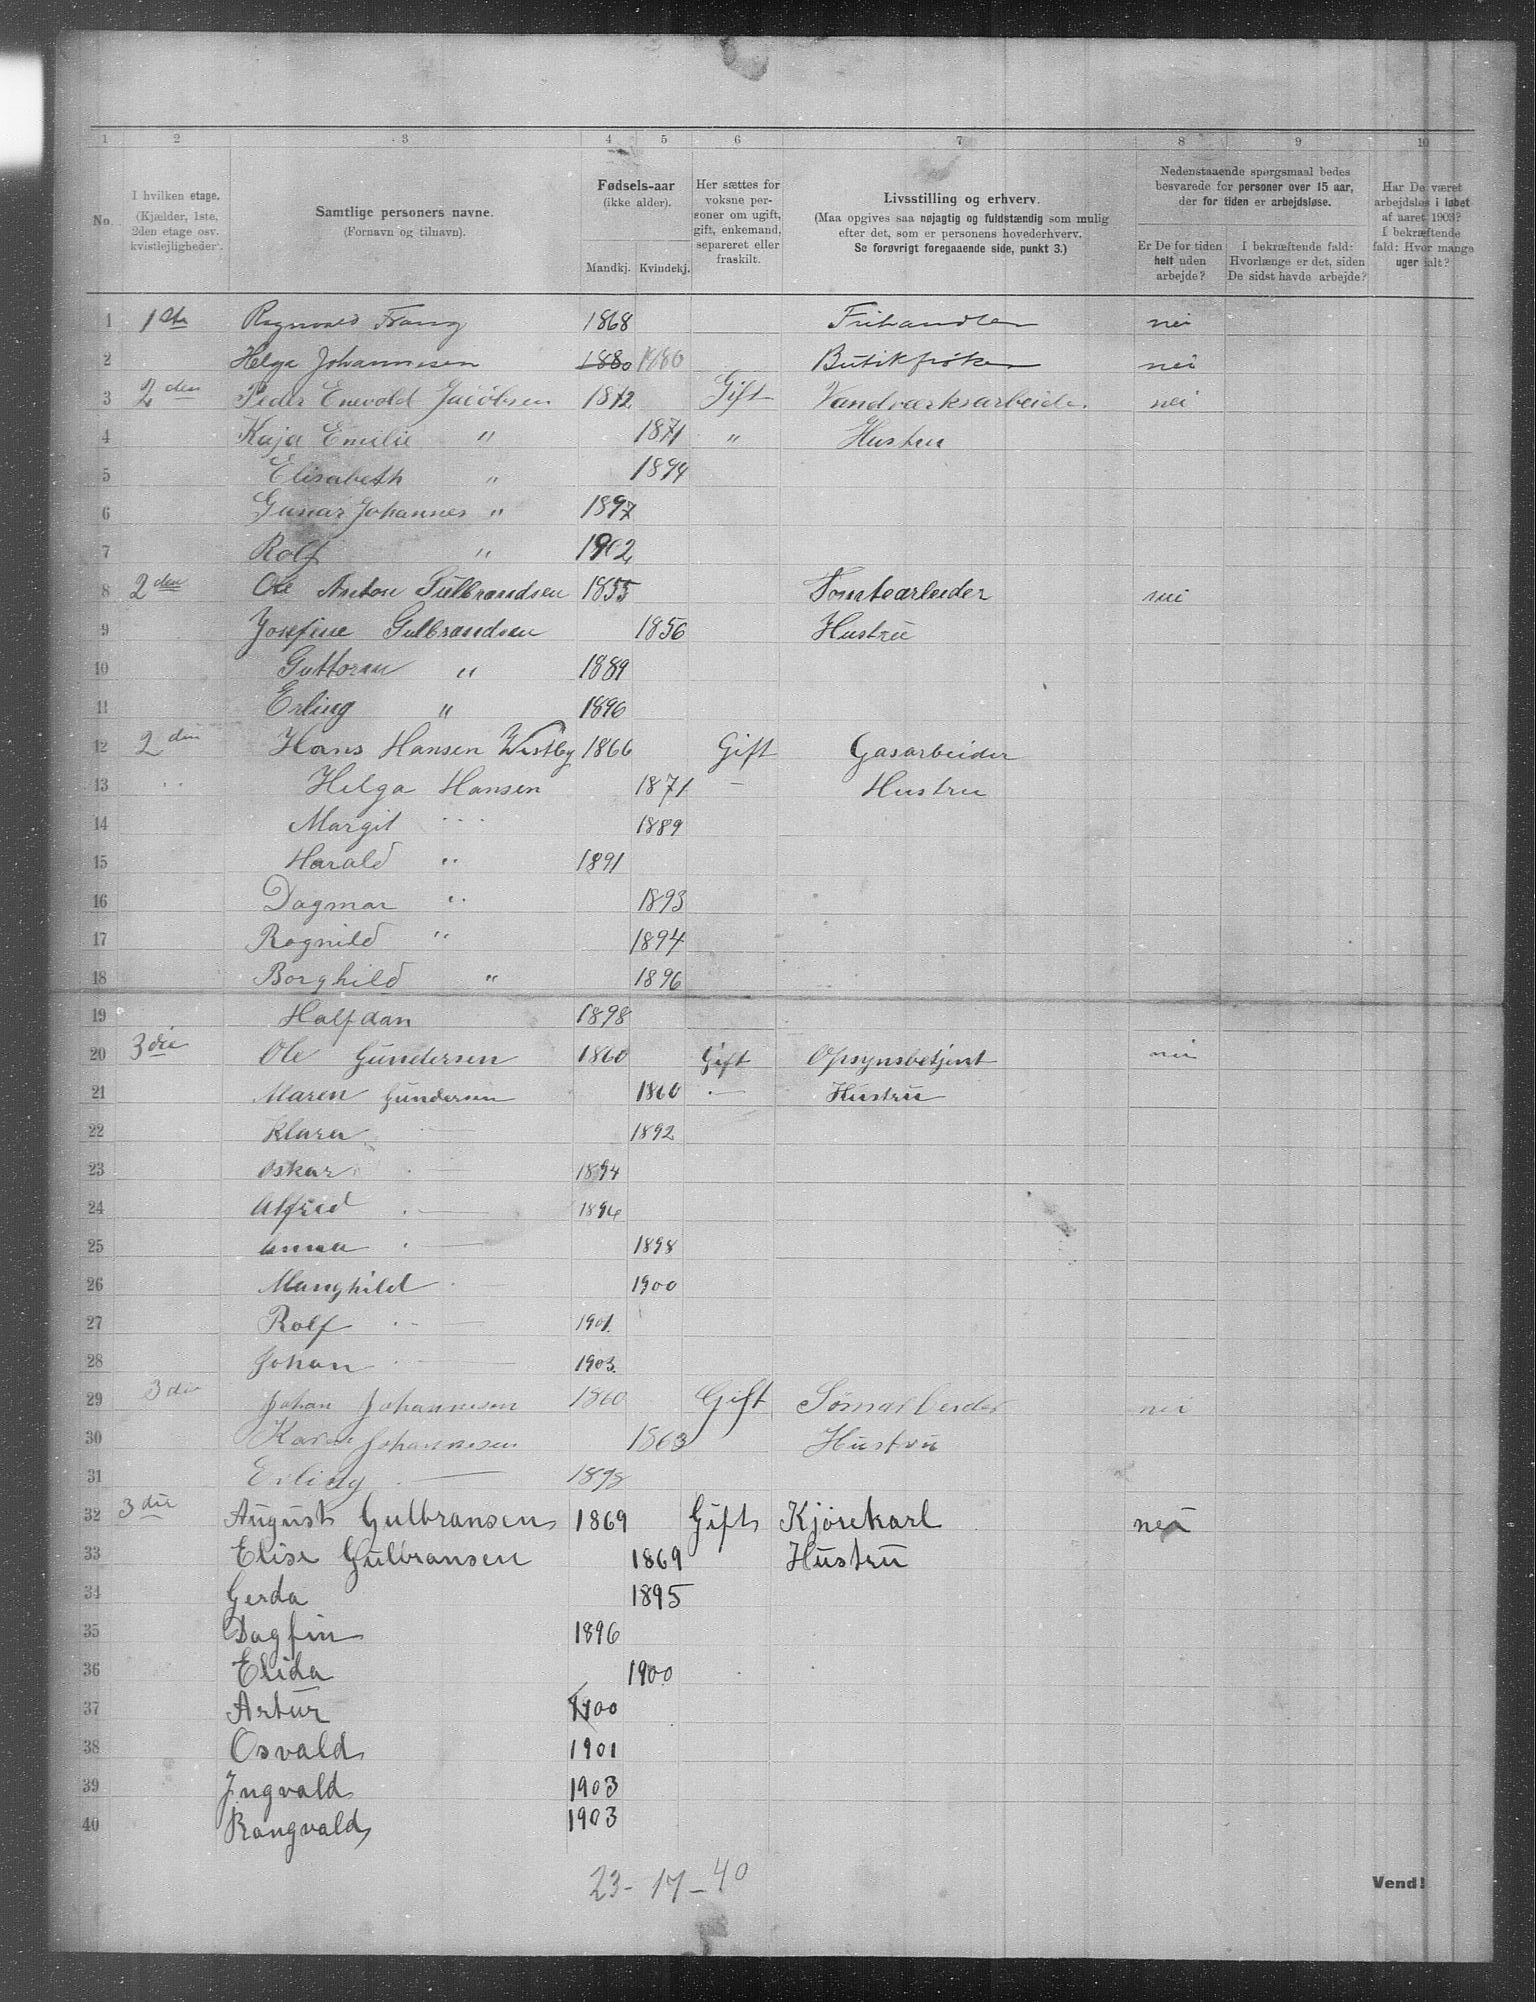 1 2 3 4 5 6 7 8 9 10
No.
I hvilken etage. (Kjælder, 1ste, 2den etage osv. kvistleiligheder.
Samtlige personers navne.
(Fornavn og tilnavn).
Fødsels-aar
(ikke alder).
Mandkj. Kvindekj.
Her sættes for voksne personer om ugift, gift, enkemand, separeret eller fraskilt.
Livsstilling og erhverv.
(Maa opgives saa nøjagtig og fuldstændig som mulig
efter det, som er personens hovederhverv.
Se forøvrigt foregaaende side, punkt 3.)
Nedenstaaende spørgsmaal bedes
besvarede for personer over 15 aar,
der for tiden er arbejdsløse.
Er De for tiden helt uden arbejde?
I bekræftende fald: Hvorlænge er det, siden De sidst havde arbejde?
Har De været arbejdsløs i løbet af aaret 1903? I bekræftende fald: Hvor mange uger ialt?
1 1ste Ragnvald 1868 Frihandler nei
2 Helga Johannesen 1880 1880 Butikfrøken nei
3 2den Peder Enevold Jacobsen 1872 Gift Vandværksarbeider nei
4 Kaja Emilie " 1871 " Hustru
5 Elisabeth " 1894
6 Gunar Johannes " 1897
7 Rolf " 1902
8 2den Ole Anton Gulbrandsen 1855 Tomtearbeider nei
9 Josefine Gulbrandsen 1856 Hustru
10 Guttorm " 1889
11 Erling " 1896
12 2den Hans Hansen Westby 1866 Gift Gasarbeider
13 " Helga Hansen 1871 — Hustru
14 Margit " 1889
15 Harald " 1891
16 Dagmar " 1893
17 Ragnild " 1894
18 Borghild " 1896
19 Halfdan 1898
20 3die Ole Gundersen 1860 Gift Opsynsbetjent nei
21 Maren Gundersen 1860 — Hustru
22 Klara — 1892
23 Oskar — 1894
24 Alfred — 1896
25 Anna — 1898
26 Manghild — 1900
27 Rolf — 1901
28 Johan — 1903
29 3die Johan Johannesen 1860 Gift nei
30 Johannesen 1863 Hustru
31 Erling — 1898
32 3die August Gulbransen 1869 Gift Kjørekarl nei
33 Elise Gulbransen 1869 Hustru
34 Gerda 1895
35 Dagfin 1896
36 Elida 1900
37 Artur 1900
38 Osvald 1901
39 Ingvald 1903
40 Rangvald 1903
23 - 17 - 40
Vend!